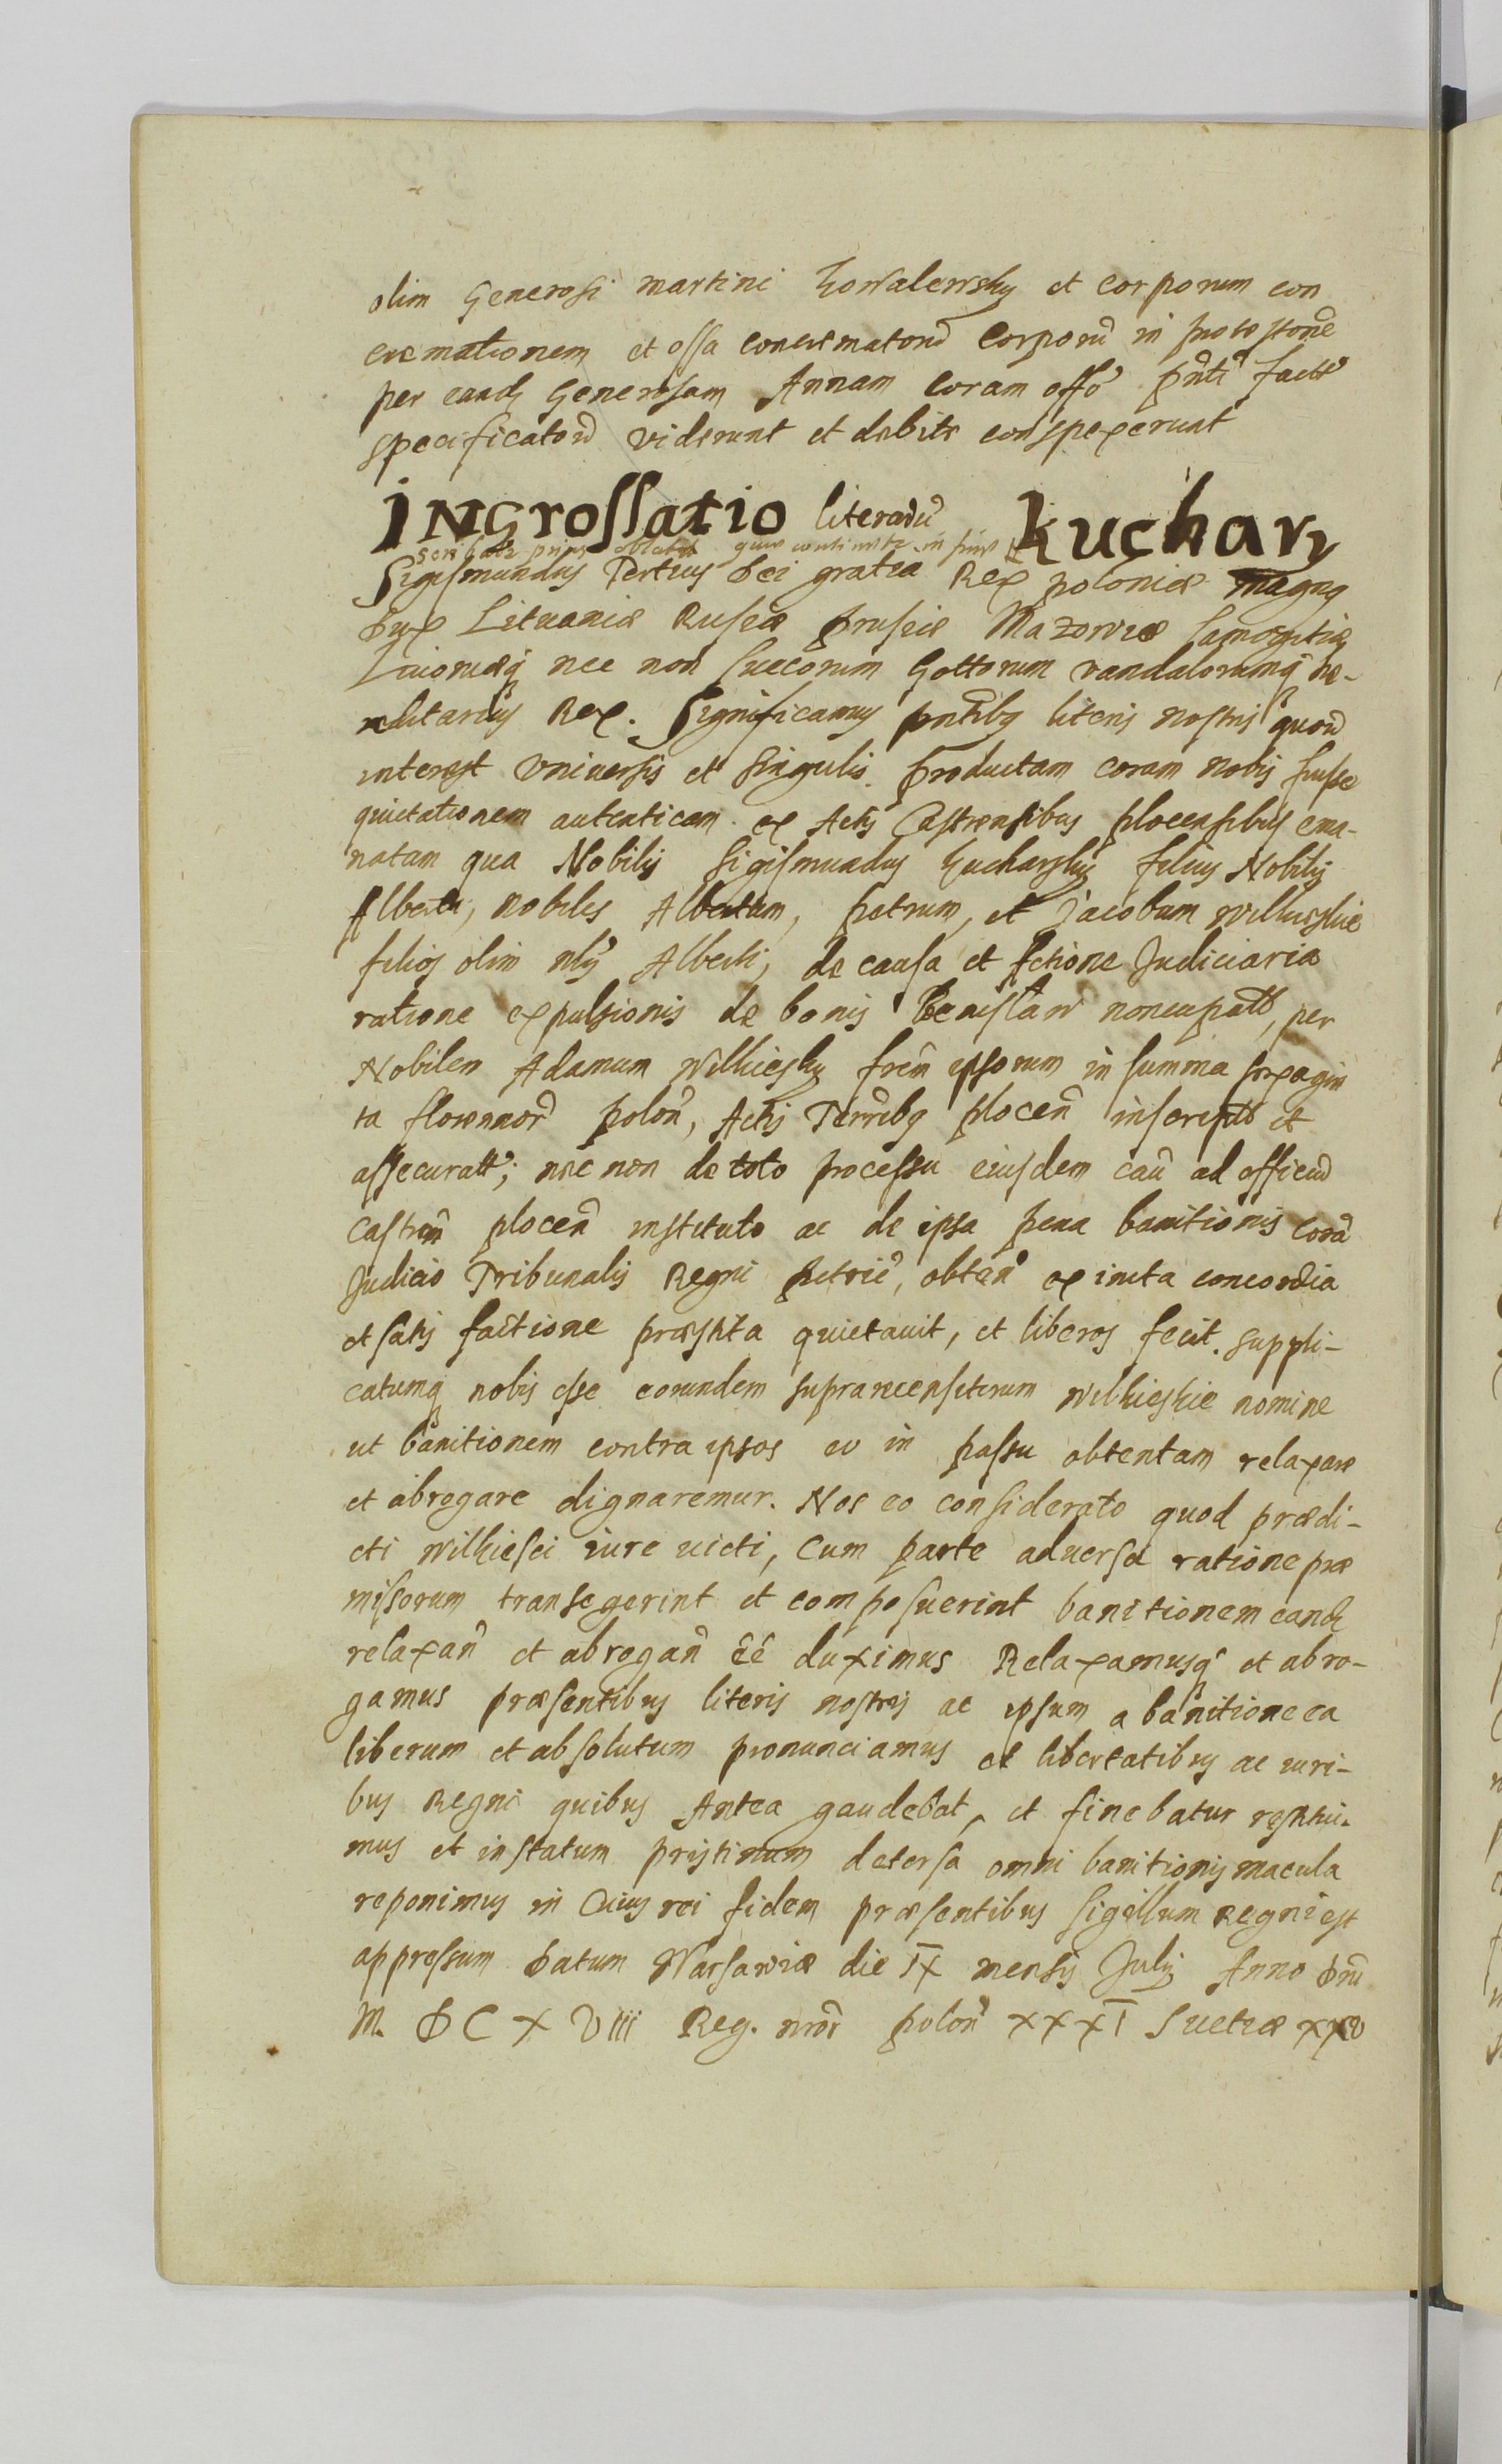 olim Generosi martini Kowalewsky et corporum con
cremat̃ionem et ossa concrematorũ Corporũ in protestatoñe
per eand Generosam Annam coram offõ pñti factt
specificatorũ viderunt et debite conspexerunt
INGrossatio literarũ Kuchar
prius quae continetr in
Sigismundus Tertius Dei gratia Rex poloniæ magnꝯ
Dux Lituaniæ Rusciæ prusciæ Mazowiæ Samogitiæ
Liuoniæq nec non Suecorum Gottorum vandalorumq hæ-
reditarius Rex. Significamus pñtibꝯ literis nostris quorũ
interest vniuersis et singulis. productam coram nobis fuisse
quietationem autenticam ex Actis Castrensibus plocensibus ema-
natam qua Nobilis Sigismundus Kucharsky filius Nobilis
Alberti, nobiles Albertum, petrum, et Jacobum wilkieskie
filios olim nlis Alberti, de causa et Actione Judiciaria
ratione expulsionis de bonis noncupatt, per
Nobilem Adamum Wilkiesky frẽm ipsorum in summa sexagin
ta florenorũ poloñ, Actis Terrebꝯ ploceñ inscriptt et
assecuratt; nec non de toto processu eiusdem cau ad officiũ
Castreñ ploceñ instituto ac de ipsa pena banitionis corã
Judicio Tribunalis Regni petric, obteñ ex iuncta concordia
et satis factione præstita quietauit, et liberos fecit. suppli-
catumq nobis esse eorundem supranecensitorum wilkieskie nomine
ut banitionem contra ipsos eo in passu obtentam relaxare
et abrogare dignaremur. Nos eo considerato quod prædi-
cti wilkiesci iure uicti, Cum parte aduersa ratione præ
missorum transegerint et composuerint banitionem eand
relaxañ et abrogañ ẽẽ duximus Relaxamusq et abro-
gamus præsentibus literis nostris ac ipsum a banitione ea
liberum et absolutum pronunciamus et libertatibus ac iuri-
bus Regni quibus Antea gaudebat, et finebatur restitui-
mus et in statum pristinum detersa omni banitionis macula
reponimus in Cuius rei fidem præsentibus sigillum Regni est
appressum Datum Warsawiæ die IX mensis Julij Anno Dni
M. D C X VIII Reg. nror poloñ XXXI Suetiæ XXV